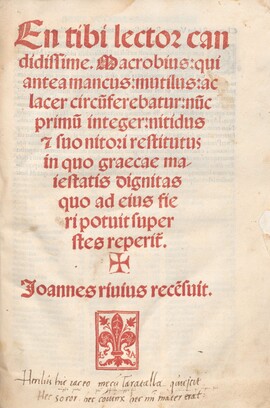 En tibi lector can
didissime. Macrobius: qui
antea mancus: mutilus: ac
lacer circūferebatur: nūc
primū integer: nitidus
⁊ suo nitori restitutus
in quo graecae ma
iestatis dignitas
quo ad eius fie
ri potuit super
stes reperit̄.
Joannes rivius recēsuit.
Herilis hic iaceo meci taratalla quiescit
Nec soror nec coniunx nec mi mater erat